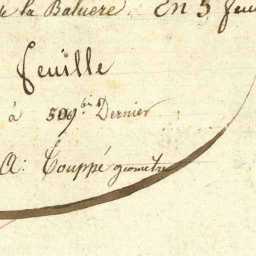 de la Baluere. En 5 feui
feuille
à 509 bis Dernier
A: Couppé géomètre